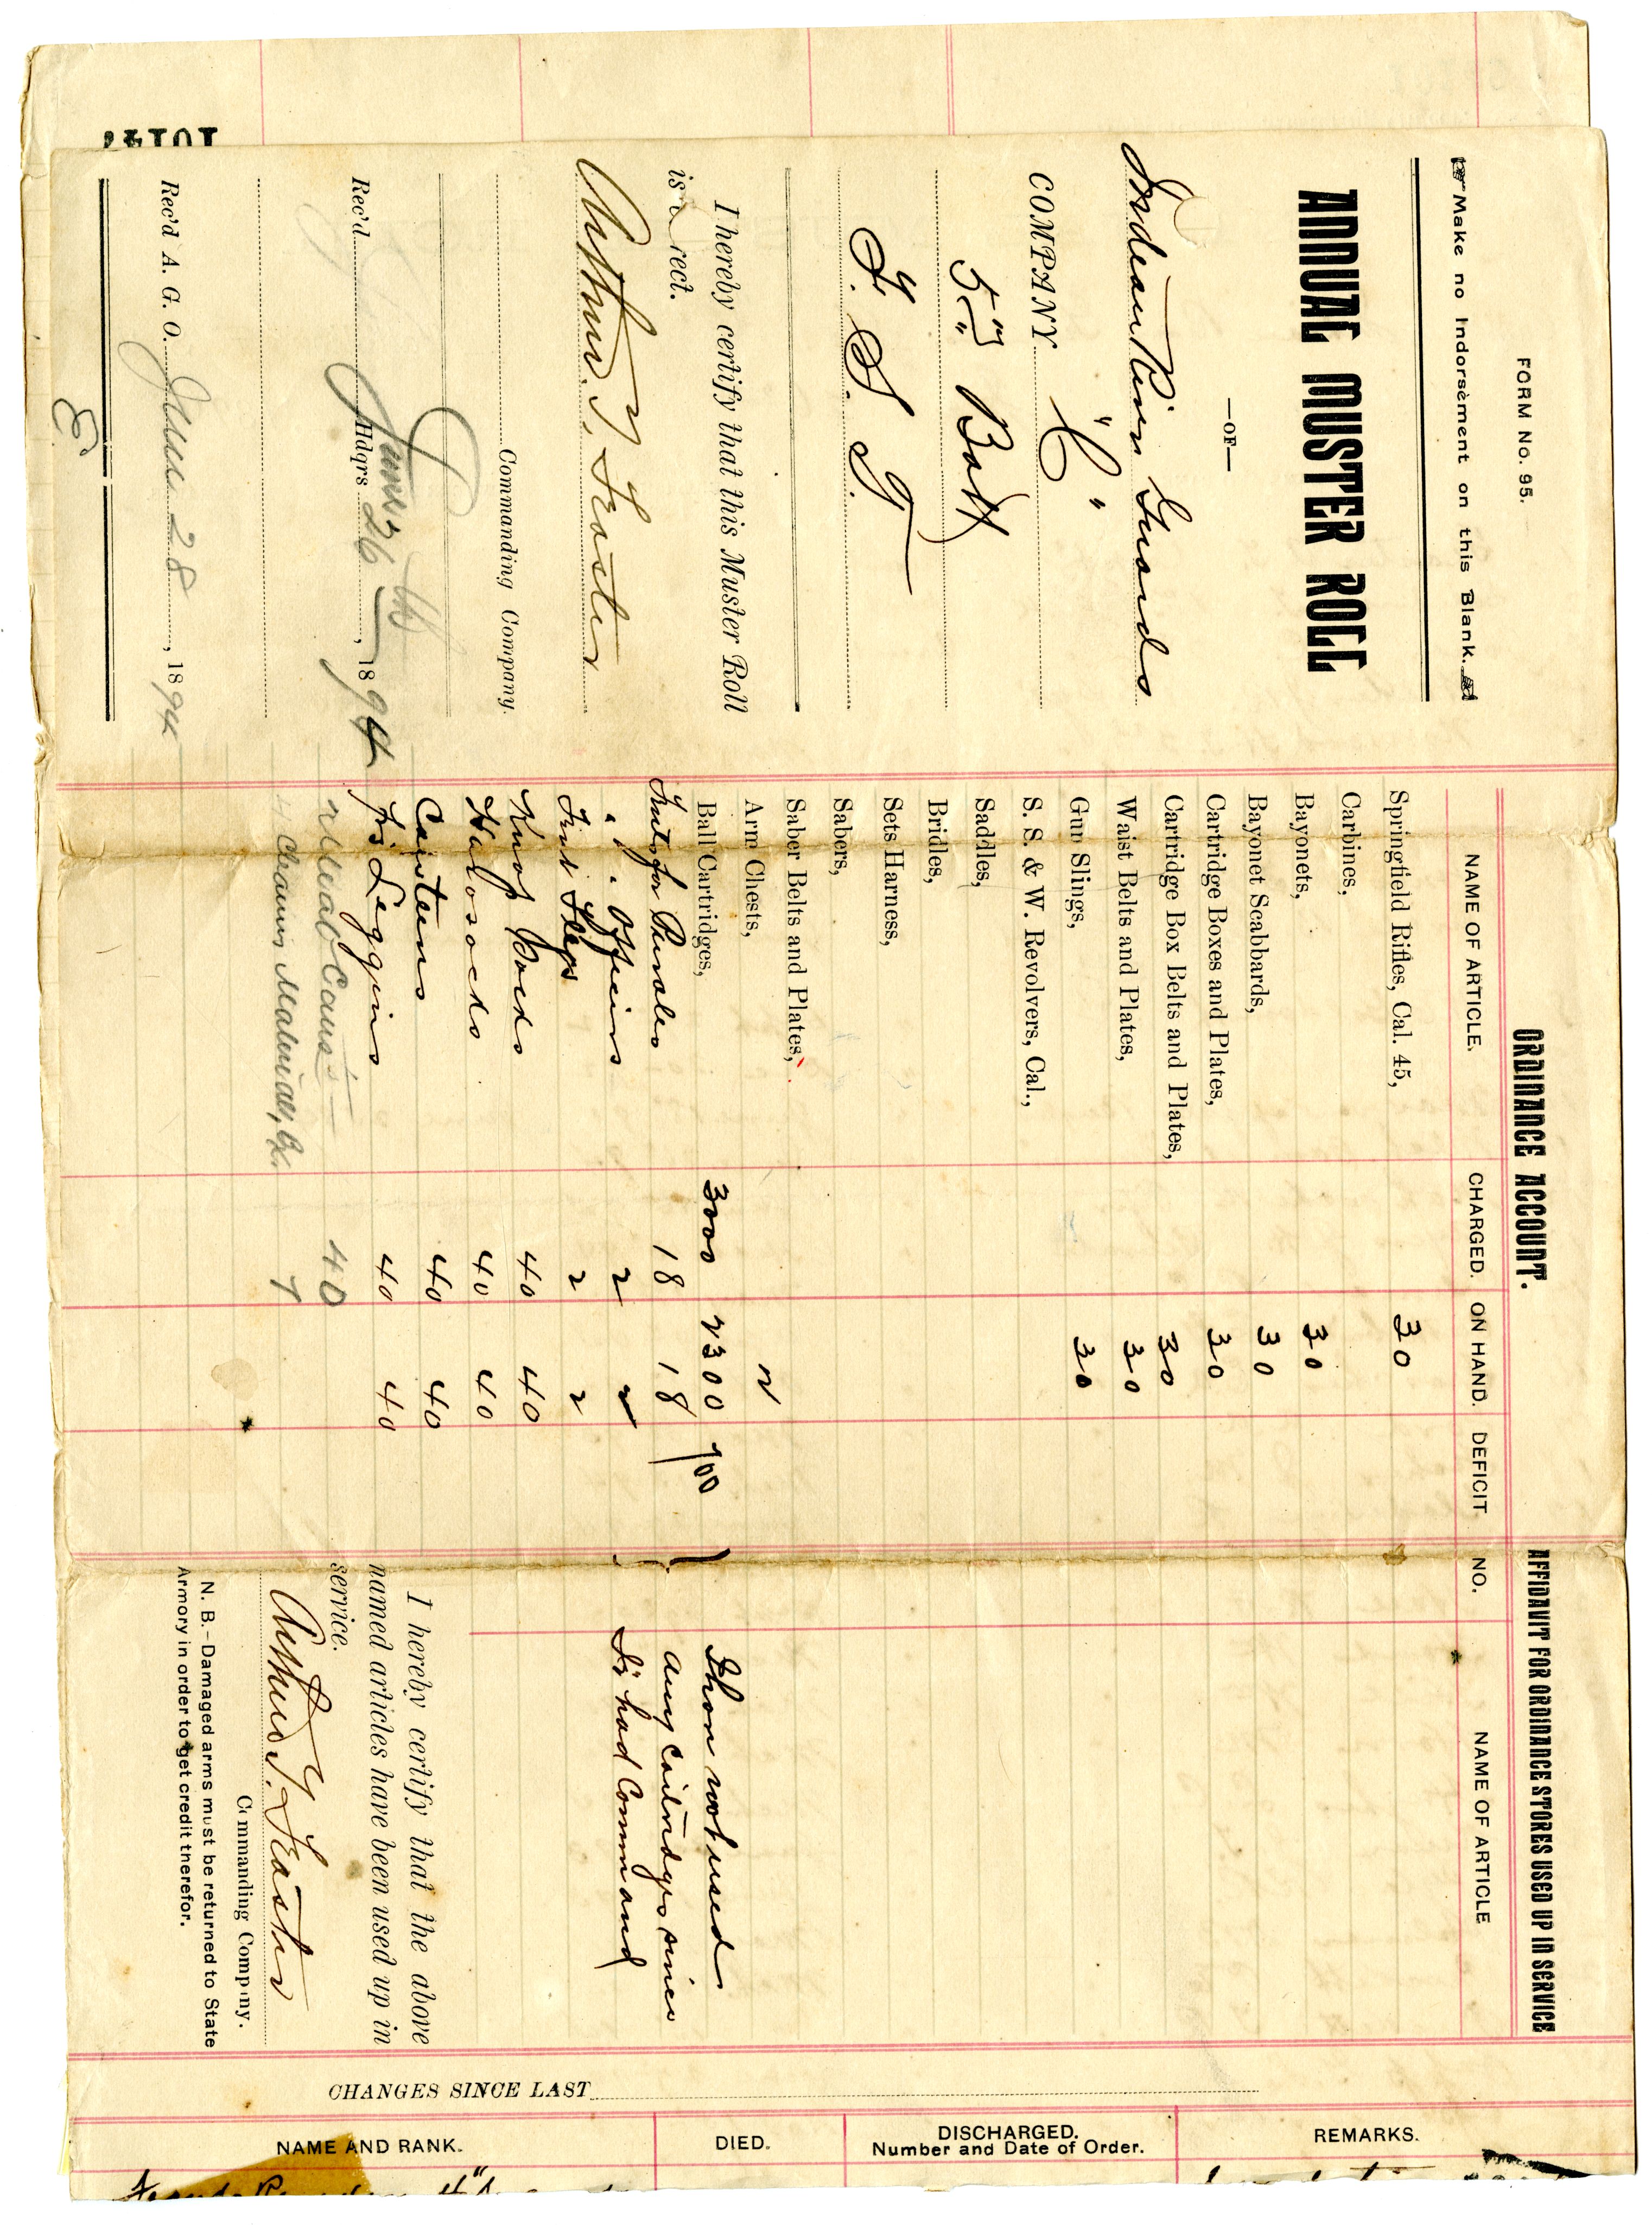 FORM No. 95.
Make no Indorsement on this Blank.
ANNUAL MUSTER ROLL
—OF—
Indean River Guards
COMPANY "C"
5" Batt
F. S. T.
I hereby certify that this Muster Roll
is rect.
Arthur T. Feaster
Commanding Company.
Rec'd Hdqrs June 26th, 1894
Rec'd A. G. O. June 28, 1894
E.
10147
ORDINANCE ACCOUNT.
NAME OF ARTICLE. CHARGED. ON HAND. DEFICIT
Springfield Rifles, Cal. 45, 30
Carbines,
Bayonets, 30
Bayonet Scabbards, 30
Cartridge Boxes and Plates, 30
Cartridge Box Belts and Plates, 30
Waist Belts and Plates, 30
Gun Slings, 30
S. S. & W. Revolvers, Cal.,
Saddles,
Bridles,
Sets Harness,
Sabers,
Saber Belts and Plates,
Arm Chests, 2
Ball Cartridges, 3000 2300 700
Tents for Privates 18 18
" " Officers 2 2
Tent Flags 2 2
Knap Packs 40 40
Havosacks 40 40
Canteens 40 40
Prs Leggins 40 40
Meat Cans 40
Cleaning Materials, 1
AFFIDAVIT FOR ORDINANCE STORES USED UP IN SERVICE
NO. NAME OF ARTICLE
I hav not used
any caitridges since
I've had Command
I hereby certify that the above
named articles have been used up in
service.
Arthur T. Feaster
Commanding Company.
N. B.—Damaged arms must be returned to State
Armory in order to get credit therefor.
CHANGES SINCE LAST
NAME AND RANK. DIED. DISCHARGED. REMARKS.
Number and Date of Order.